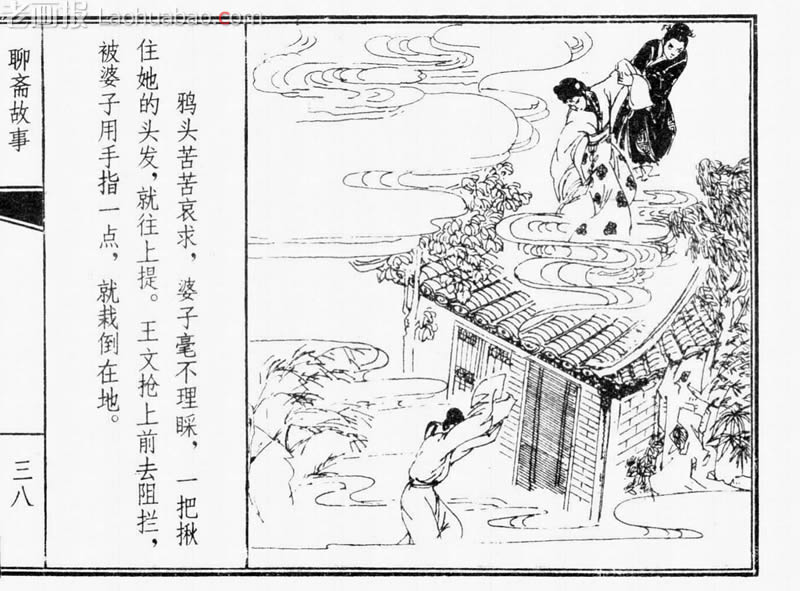 老画报 Laohuabao.com
鸦头苦苦哀求，婆子毫不理睬，一把揪
住她的头发，就往上提。王文抢上前去阻拦，
被婆子用手指一点，就栽倒在地。
聊斋故事
三八